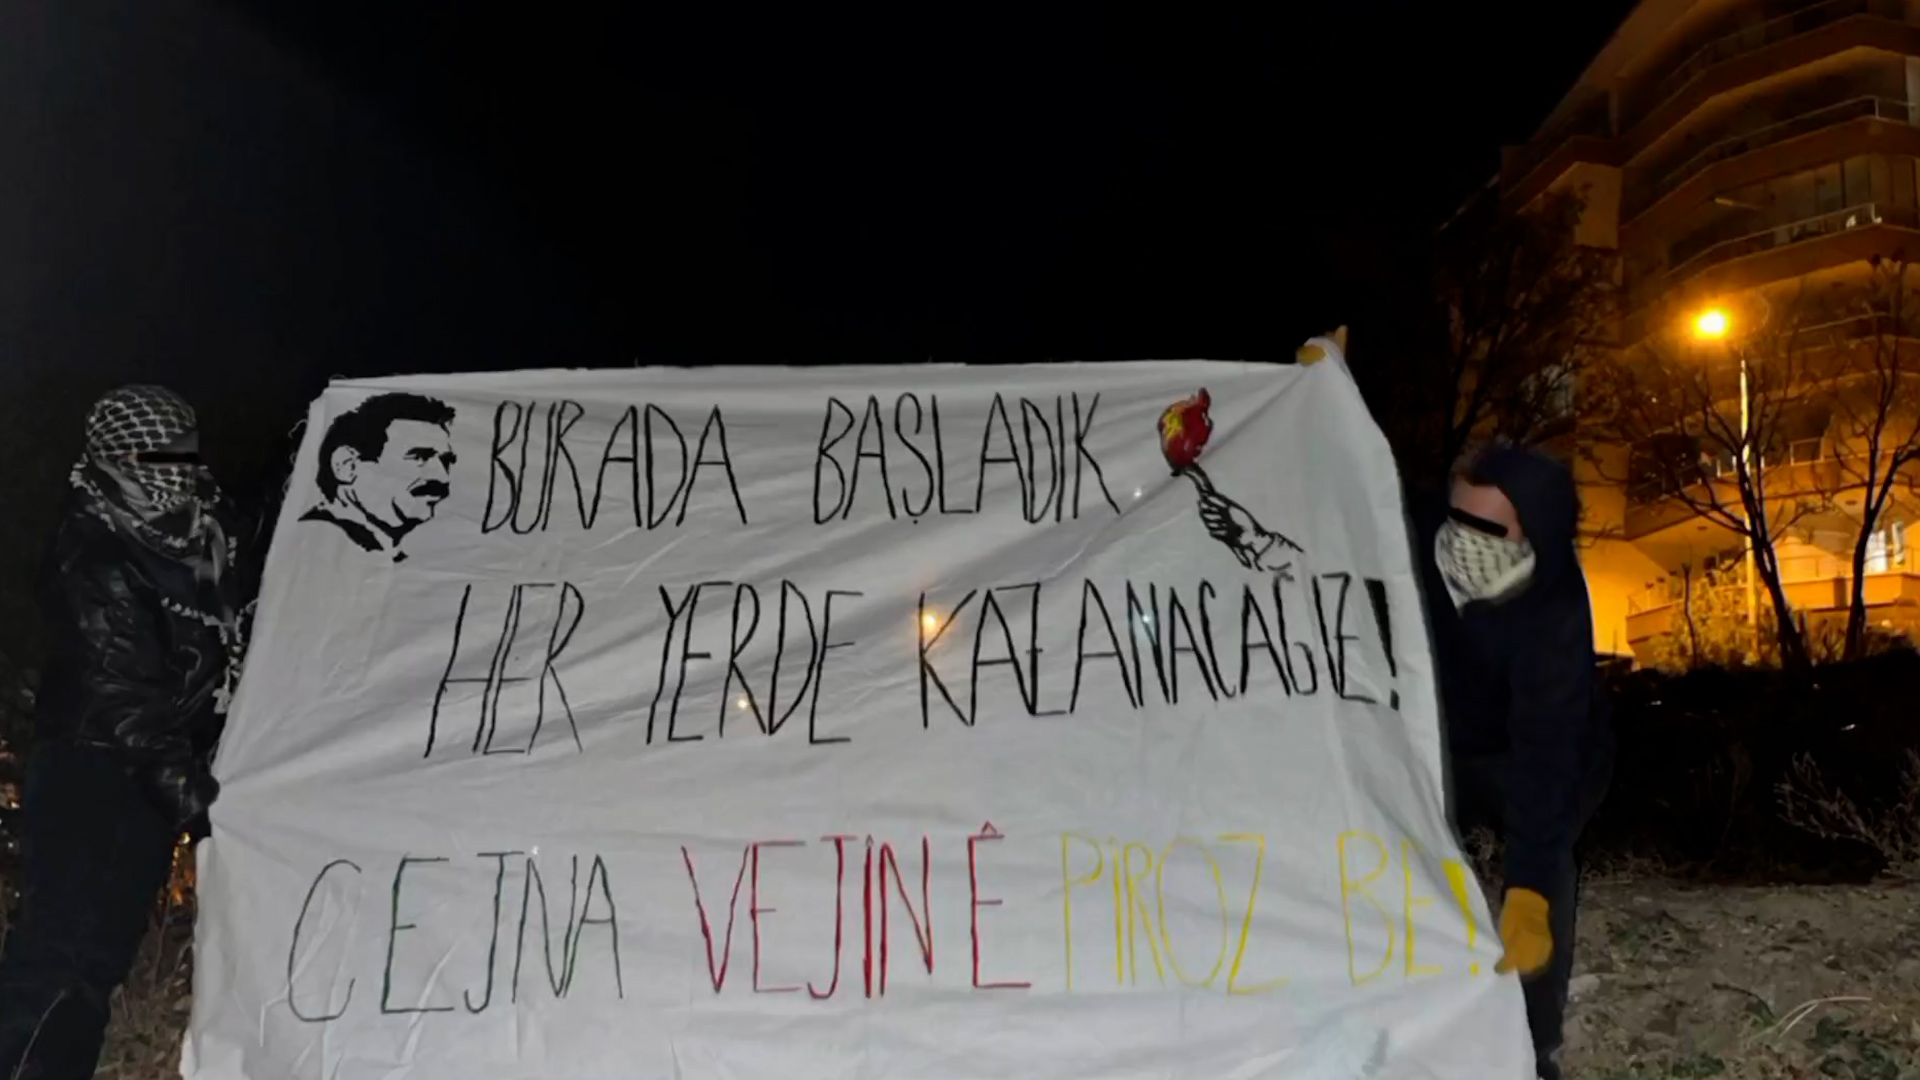 BURADA BAŞLADIK
HER YERDE KAZANACAĞIZ!
CEJNA VEJÎNÊ PÎROZ BE!